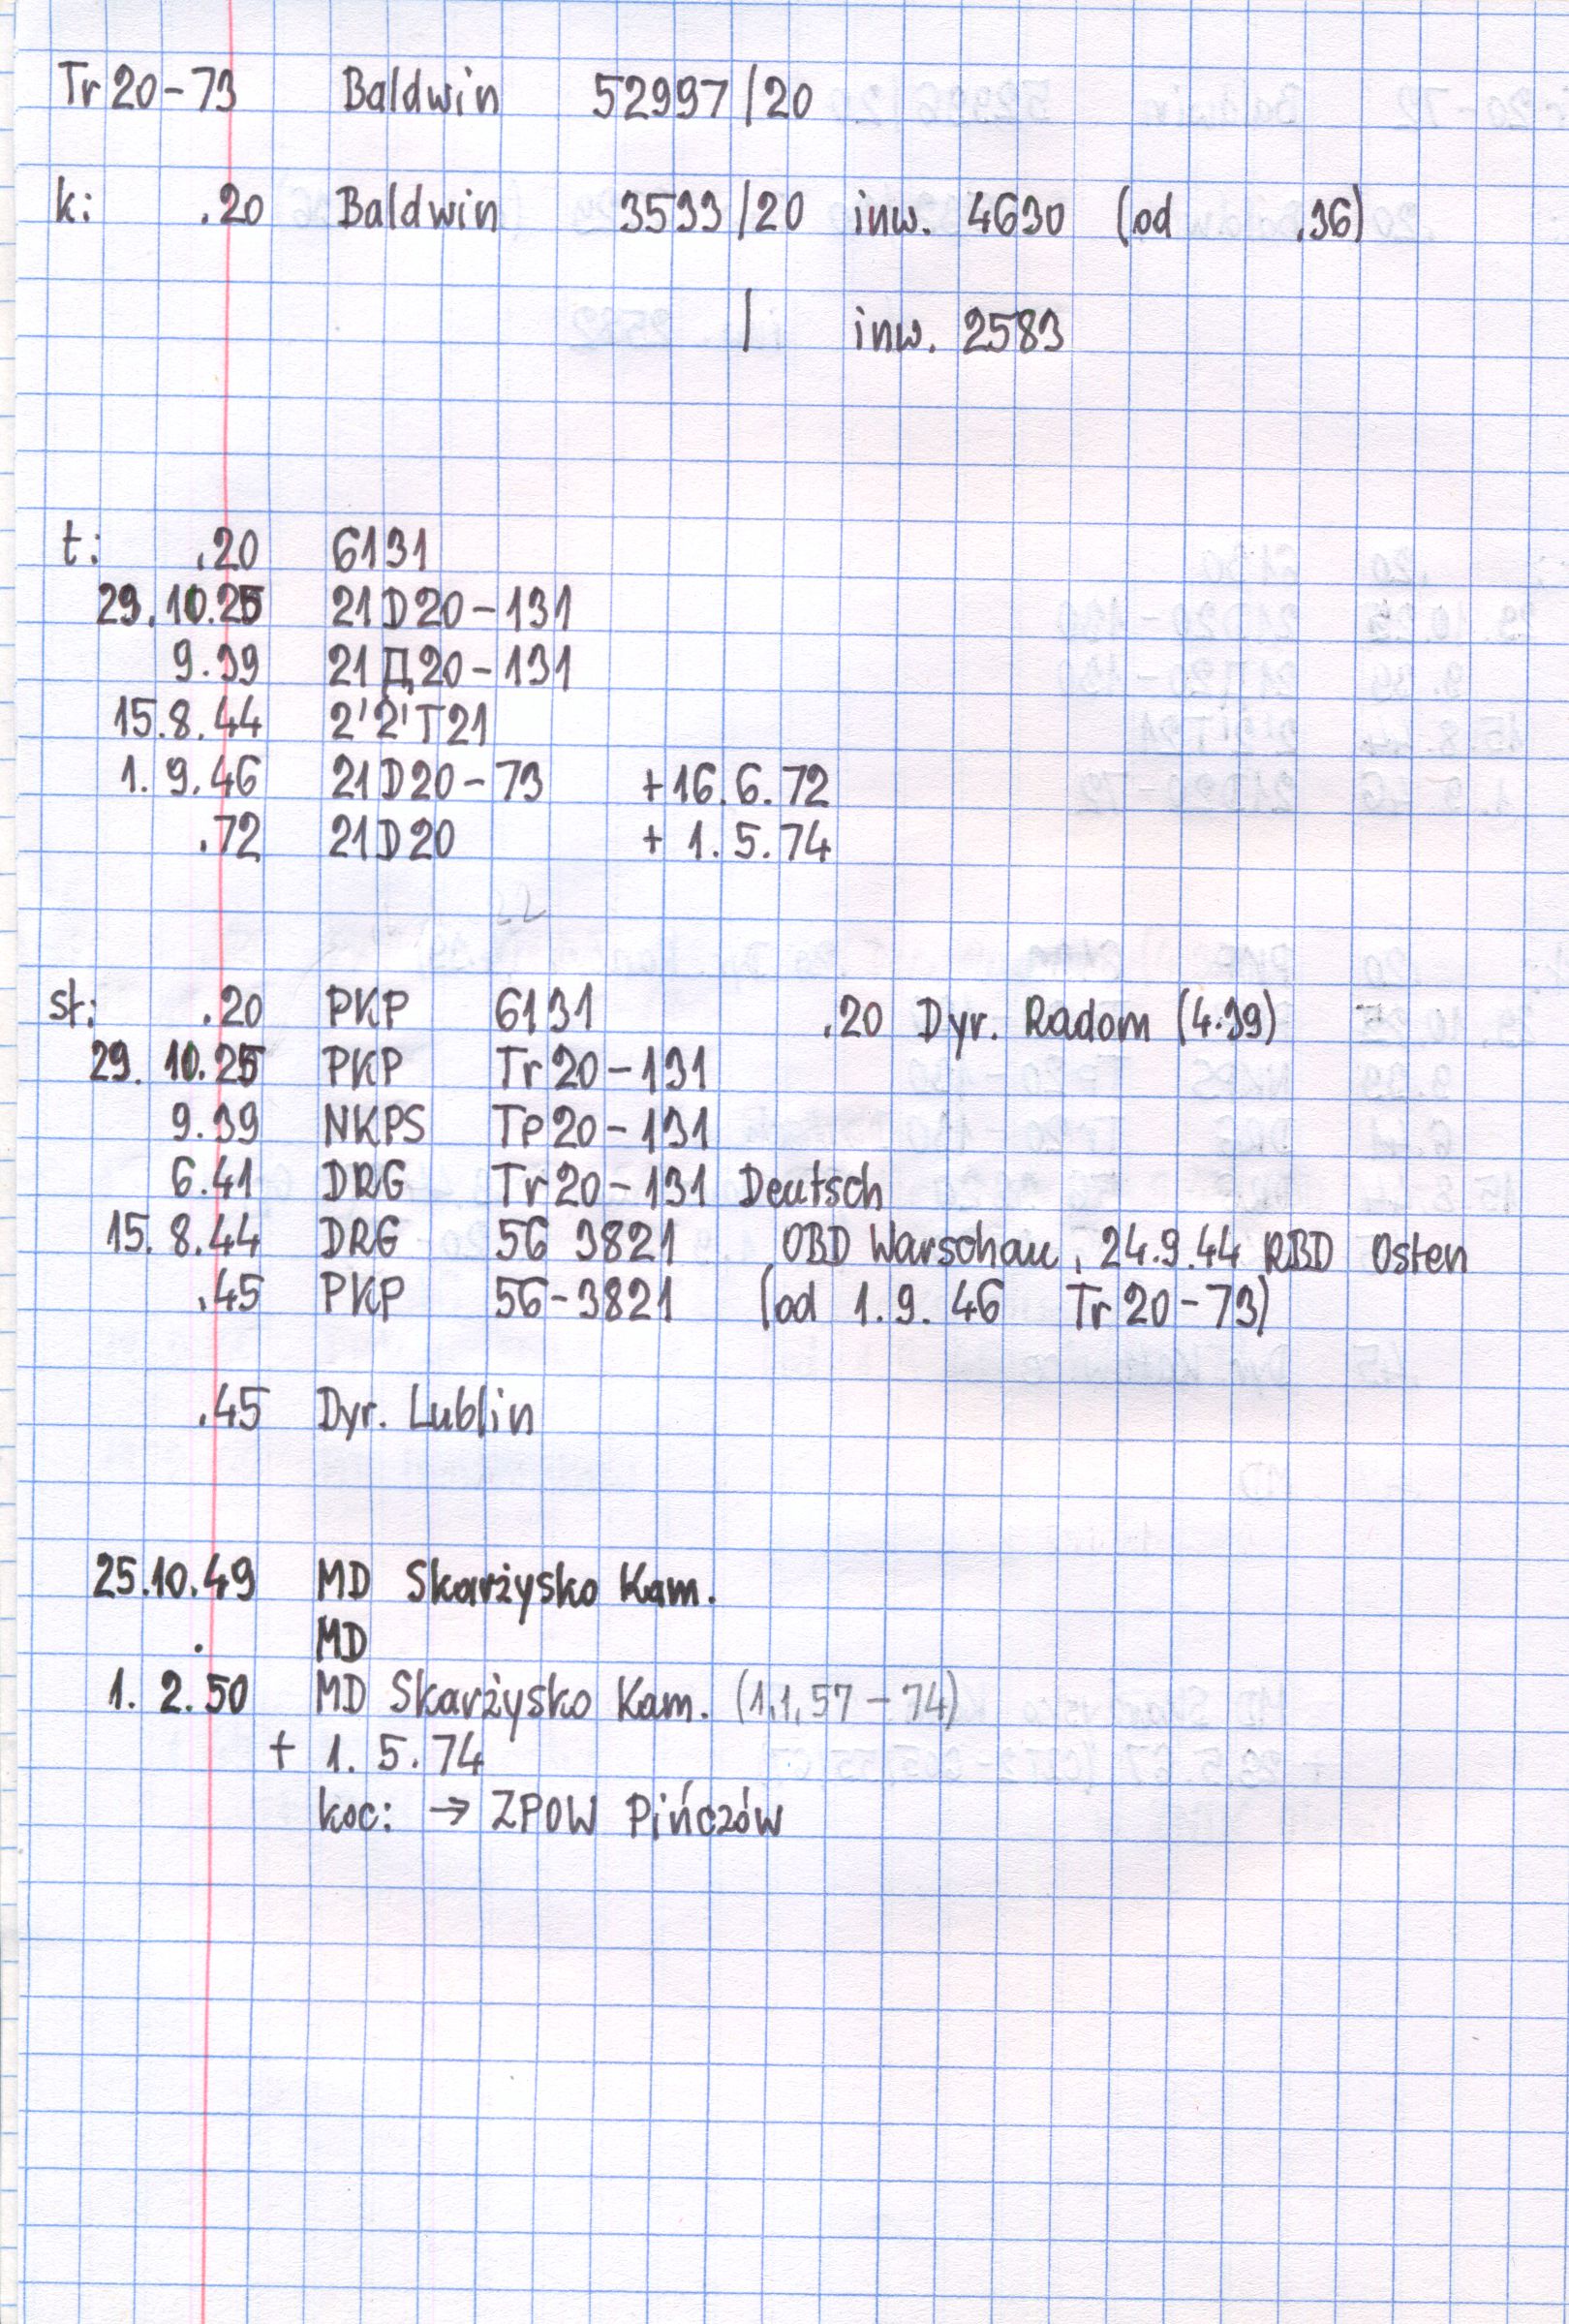 Tr 20-73 Baldwin 52997/20
k: .20 Baldwin 3533/20 inw. 4630 (od .36)
/ inw. 2583
t: .20 6131
29.10.25 21D20-131
9.39 21Д20-131
15.8.44 2'2'T21
1.9.46 21D20-73 +16.6.72
.72 21D20 + 1.5.74
sł: .20 PKP 6131 .20 Dyr. Radom (4.39)
29.10.25 PKP Tr20-131
9.39 NKPS Тр20-131
6.41 DRG Tr20-131 Deutsch
15.8.44 DRG 56 3821 OBD Warschau, 24.9.44 RBD Osten
.45 PKP 56-3821 (od 1.9.46 Tr20-73)
.45 Dyr. Lublin
25.10.49 MD Skarżysko Kam.
. MD
1.2.50 MD Skarżysko Kam. (1.1.57-74)
+ 1.5.74
koc: → ZPOW Pińczów